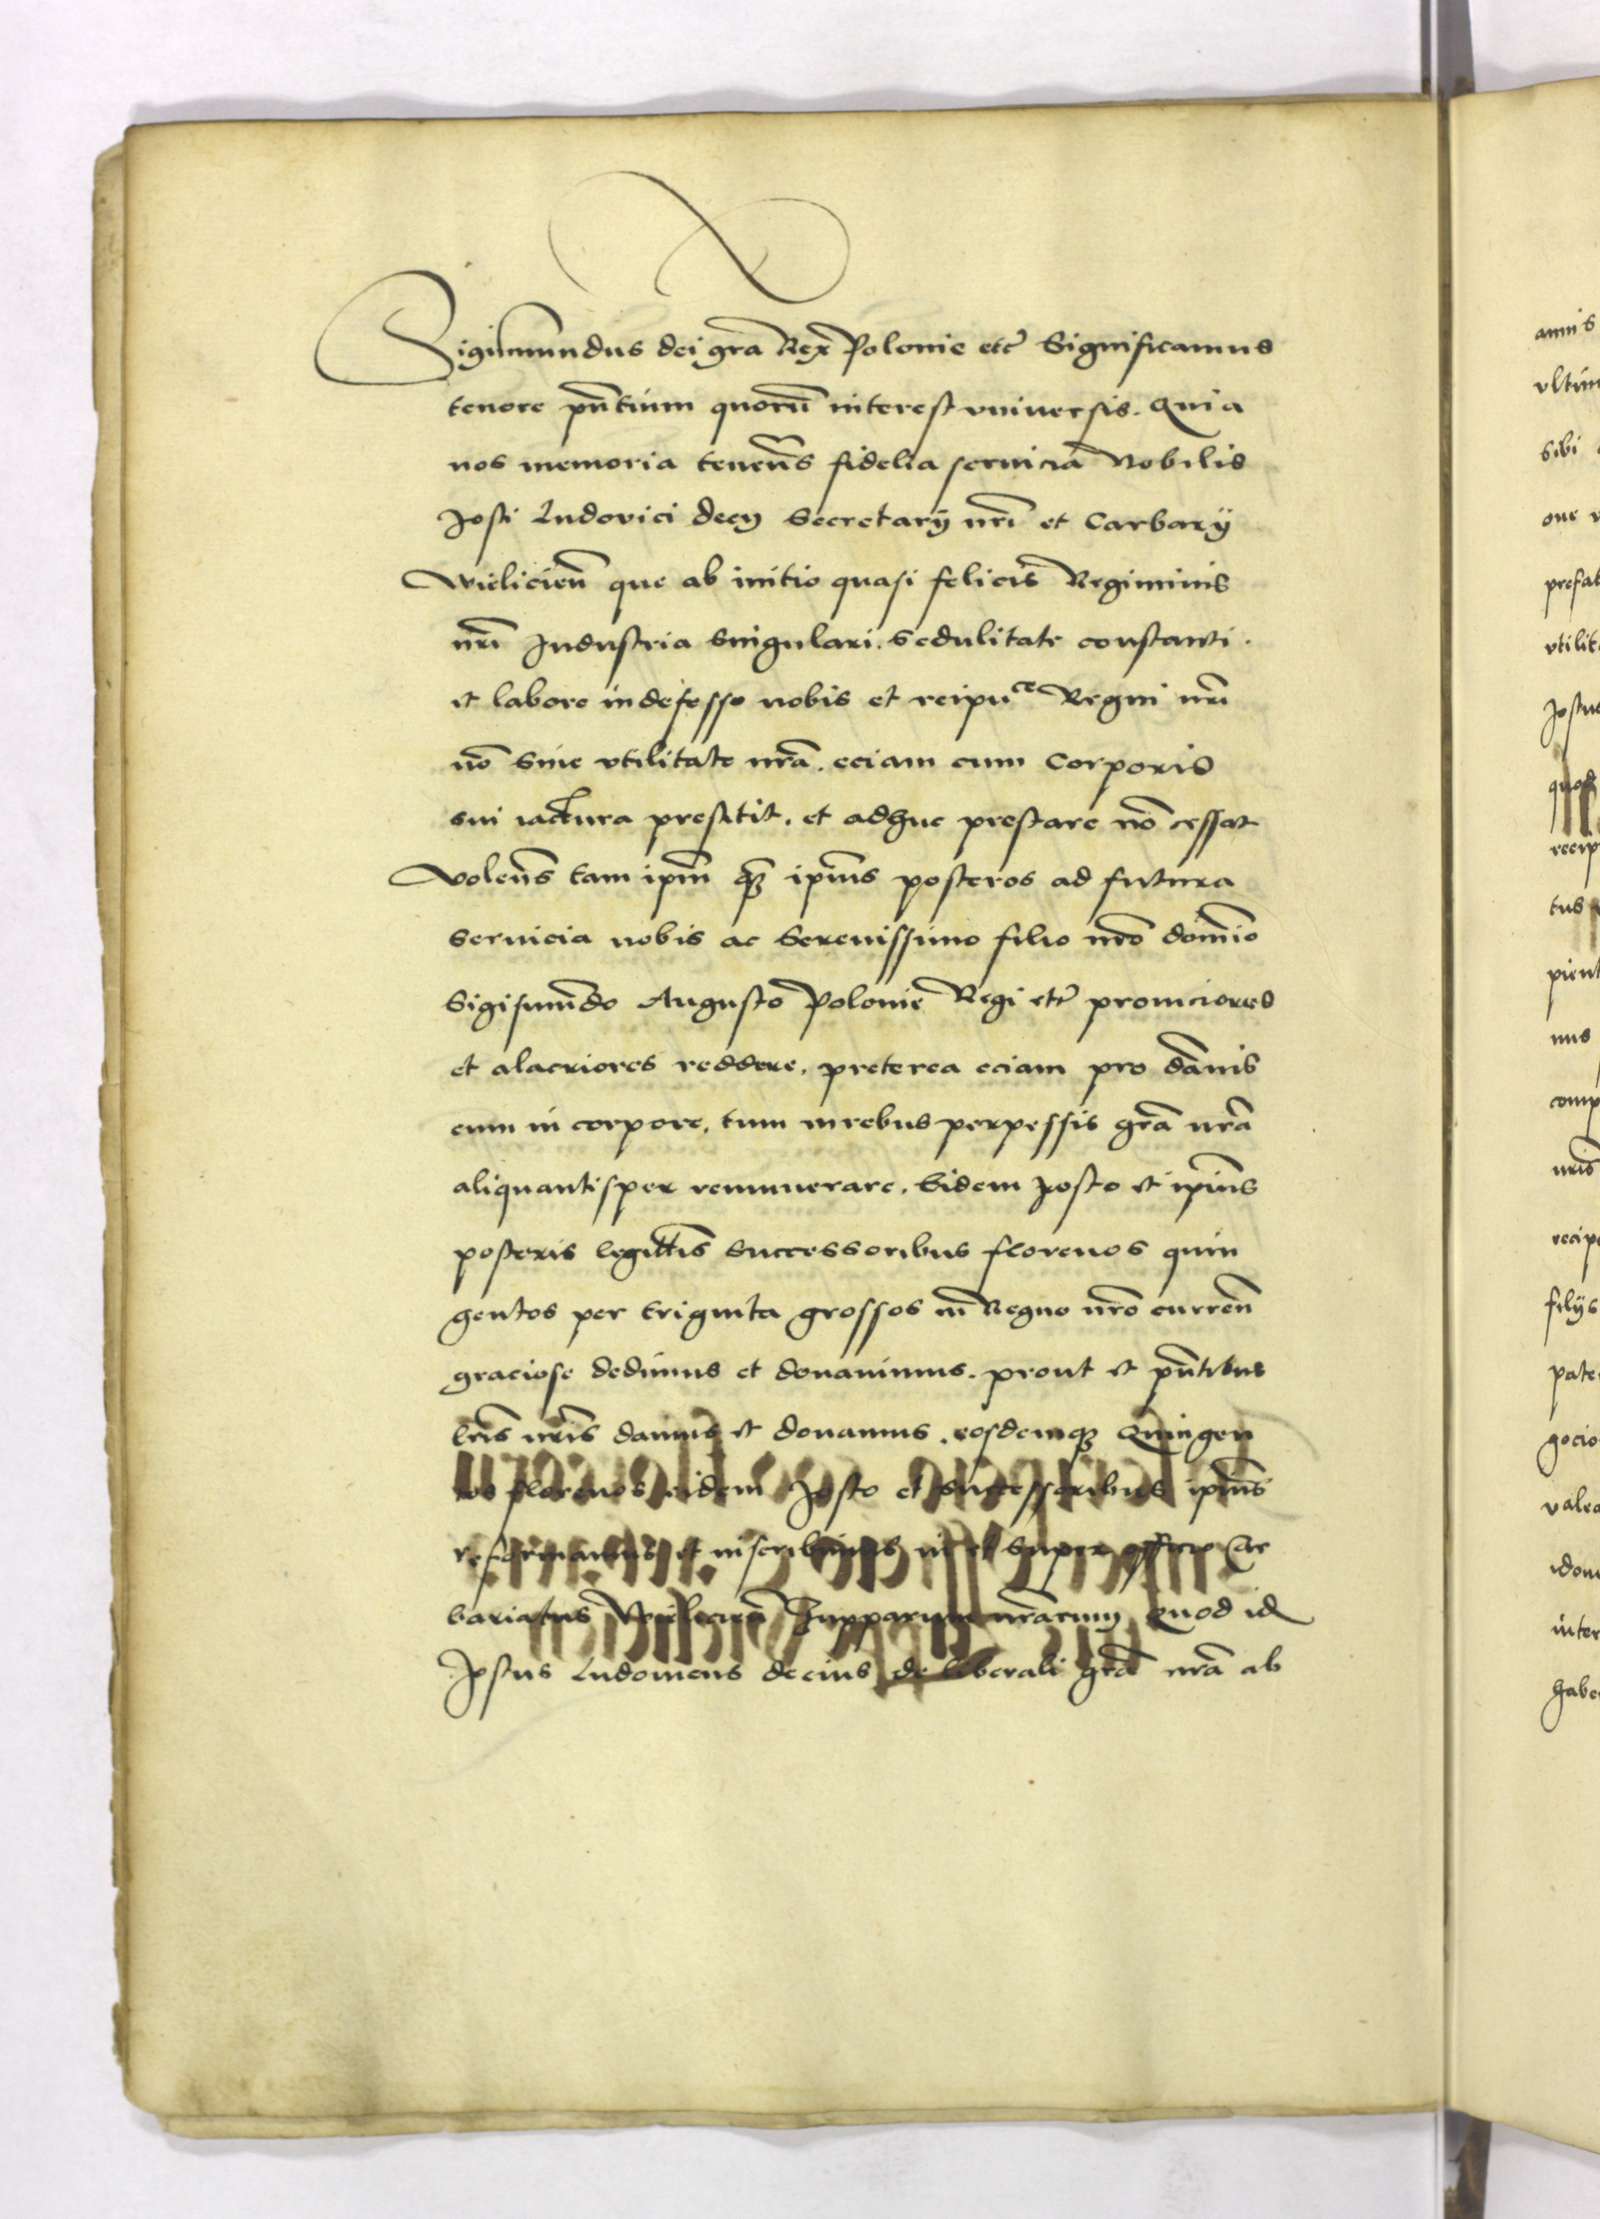 Sigismundus dei grã Rex Polonie etc̃ Significamus
tenore pñtium quorũ interest vniuersis. Quia
nos memoria tenen̄s fidelia seruicia Nobilis
Josti Ludovici decij Secretarij nr̃i et Carbarij
Wielicien̄ que ab initio quasi felicis Regiminis
nr̃i Industria Singulari. Sedulitate constanti.
et labore indefesso nobis et reipuce Regni nr̃i
nõ Sine vtilitate nr̃a. eciam cum Corporis
sui iactura prestitit. et adhuc prestare nõ cessat
Volen̄s tam ipm̃ q̃ ipius posteros ad futura
seruicia nobis ac Serenissimo filio nr̃o domĩo
Sigismũdo Augusto Polonie Regi etc̃ promciores
et alacriores reddere. preterea eciam pro dãnis
cum in corpore, tum in rebus perpessis grã nr̃a
aliquantisper remunerare. Eidem Josto et ipius
posteris legittis̃ Successoribus florenos quin
gentos per triginta grossos in Regno nr̃o curren̄
graciose dedimus et donauimus. prout et pñtibus
lr̃is nr̃is damus et donamus. eosdemq3 Quingen
tos florenos eidem Josto et Successoribus ipius
reformamus et inscribimus in et Super officio Car
bariatus Wielicien̄ Zupparum nr̃arum Quod id
Jostus Ludouicus decius de liberali grã nr̃a ab
annis
vltim
sibi
one
prefat
vtilit
Jostus
quod
recip
tus
pient
nus
comp
nr̃is
recip
filijs
pate
gocio
valea
idon
inter
habe